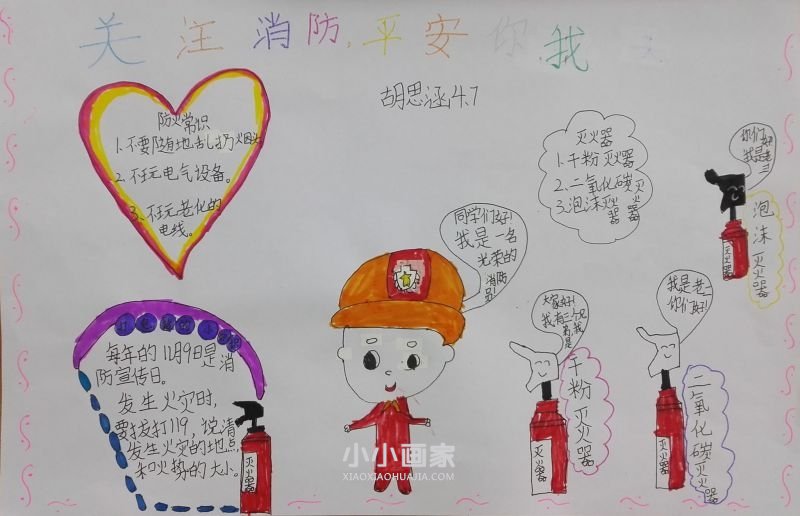 关注消防,平安你我
胡思涵4.7
防火常识
1.不要随地乱扔火因头
2.不玩电气设备。
3.不玩老化的
电线。
灭火器
1.干粉灭火器
2.二氧化碳灭火器
3.泡沫灭火器
你们好
我是老三
泡沫灭火器
灭火器
同学们好!
我是一名
光荣的
消防员!
每年的11月9日是消
防宣传日。
发生火灾时,
要拔打119,说清
发生火灾的地点
和火势的大小。
灭火器
大家好!
我有三个兄弟,我是
干粉灭火器
灭火器
我是老二
你们好!
二氧化碳灭火器
灭火器
小小画家
XIAOXIAOHUAJIA.COM